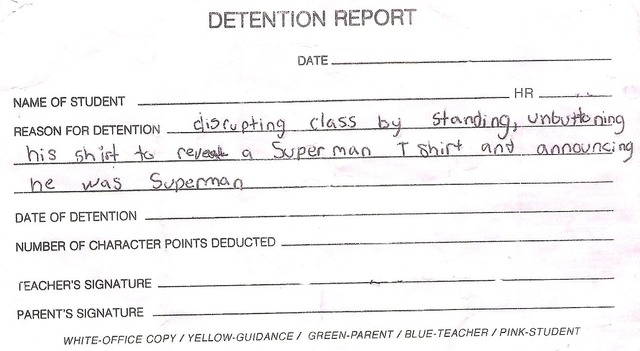 DETENTION REPORT
DATE
NAME OF STUDENT HR
REASON FOR DETENTION disrupting class by standing, unbuttoning
his shirt to reveal a Superman T shirt and announcing
he was Superman
DATE OF DETENTION
NUMBER OF CHARACTER POINTS DEDUCTED
TEACHER'S SIGNATURE
PARENT'S SIGNATURE
WHITE-OFFICE COPY / YELLOW-GUIDANCE / GREEN-PARENT / BLUE-TEACHER / PINK-STUDENT